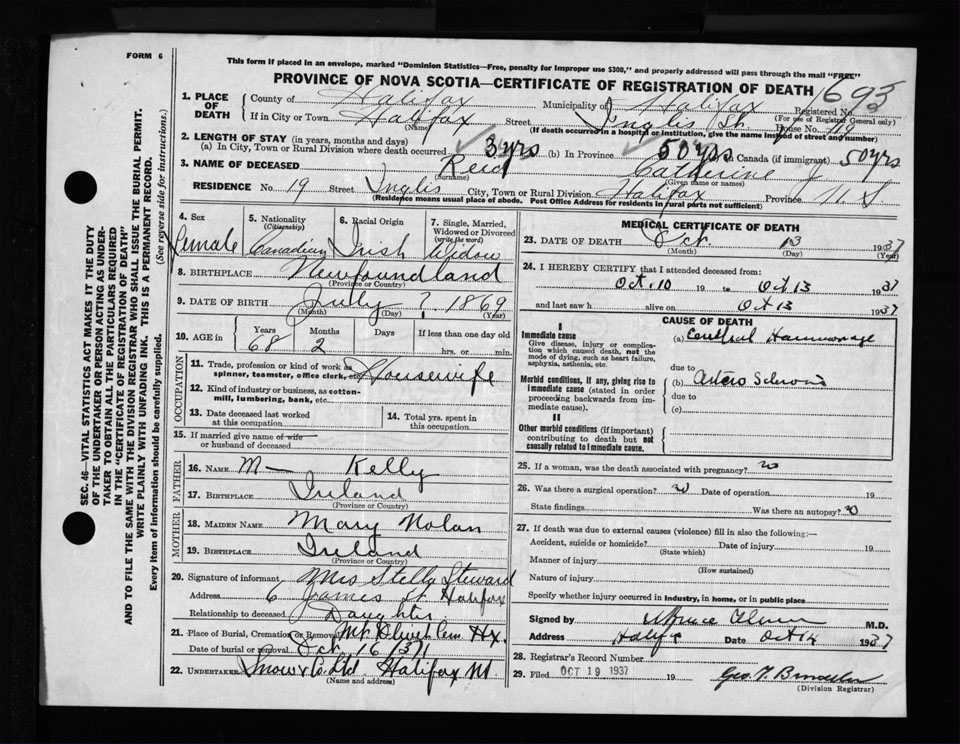 FORM 6
This form if placed in an envelope, marked "Dominion Statistics—Free, penalty for improper use $300," and properly addressed will pass through the mail "FREE"
PROVINCE OF NOVA SCOTIA—CERTIFICATE OF REGISTRATION OF DEATH
1693
1. PLACE OF DEATH
County of Halifax Municipality of Halifax Registered No.
(For use of Registrar General only)
If in City or Town Halifax Street Inglis St House No. 19
(Name) (If death occurred in a hospital or institution, give the name instead of street and number)
2. LENGTH OF STAY (in years, months and days)
(a) In City, Town or Rural Division where death occurred 3 yrs (b) In Province 50 yrs Canada (if immigrant) 50 yrs
3. NAME OF DECEASED Reid Catherine J
(Surname) (Given name or names)
RESIDENCE No. 19 Street Inglis City, Town or Rural Division Halifax Province N. S
(Residence means usual place of abode. Post Office Address for residents in rural parts not sufficient)
4. Sex Female
5. Nationality (Citizenship) Canadian
6. Racial Origin Irish
7. Single, Married, Widowed or Divorced (write the word) Widow
8. BIRTHPLACE Newfoundland
(Province or Country)
9. DATE OF BIRTH July ? 1869
(Month) (Day) (Year)
10. AGE in Years 68 Months 2 Days If less than one day old hrs. or min.
OCCUPATION
11. Trade, profession or kind of work as spinner, teamster, office clerk, etc. Housewife
12. Kind of industry or business, as cotton-mill, lumbering, bank, etc.
13. Date deceased last worked at this occupation
14. Total yrs. spent in this occupation
15. If married give name of wife or husband of deceased
FATHER
16. NAME M— Kelly
17. BIRTHPLACE Ireland
(Province or Country)
MOTHER
18. MAIDEN NAME Mary Nolan
19. BIRTHPLACE Ireland
(Province or Country)
20. Signature of informant Mrs Stelly Steward
Address 6 James St Halifax
Relationship to deceased Daughter
21. Place of Burial, Cremation or Removal Mt Hx.
Date of burial or removal Oct 16/37
22. UNDERTAKER Snow & Co Ltd. Halifax
(Name and address)
MEDICAL CERTIFICATE OF DEATH
23. DATE OF DEATH Oct 13 1937
(Month) (Day) (Year)
24. I HEREBY CERTIFY that I attended deceased from:
Oct. 10 19 to Oct 13 1937
and last saw h alive on Oct 13 1937
CAUSE OF DEATH
I
Immediate cause
Give disease, injury or complication which caused death, not the mode of dying, such as heart failure, asphyxia, asthenia, etc.
(a)
due to
Morbid conditions, if any, giving rise to immediate cause (stated in order proceeding backwards from immediate cause).
(b)
due to
(c)
II
Other morbid conditions (if important) contributing to death but not causally related to immediate cause.
25. If a woman, was the death associated with pregnancy? no
26. Was there a surgical operation? no Date of operation 19
State findings Was there an autopsy? no
27. If death was due to external causes (violence) fill in also the following:—
Accident, suicide or homicide? Date of injury 19
(State which)
Manner of injury
(How sustained)
Nature of injury
Specify whether injury occurred in industry, in home, or in public place
Signed by M.D.
Address Date Oct 14 1937
28. Registrar's Record Number
29. Filed OCT 19 1937 19
(Division Registrar)
SEC. 46—VITAL STATISTICS ACT MAKES IT THE DUTY OF THE UNDERTAKER OR PERSON ACTING AS UNDERTAKER TO OBTAIN ALL THE PARTICULARS REQUIRED IN THE "CERTIFICATE OF REGISTRATION OF DEATH" AND TO FILE THE SAME WITH THE DIVISION REGISTRAR WHO SHALL ISSUE THE BURIAL PERMIT.
WRITE PLAINLY WITH UNFADING INK. THIS IS A PERMANENT RECORD.
Every item of information should be carefully supplied. (See reverse side for instructions.)